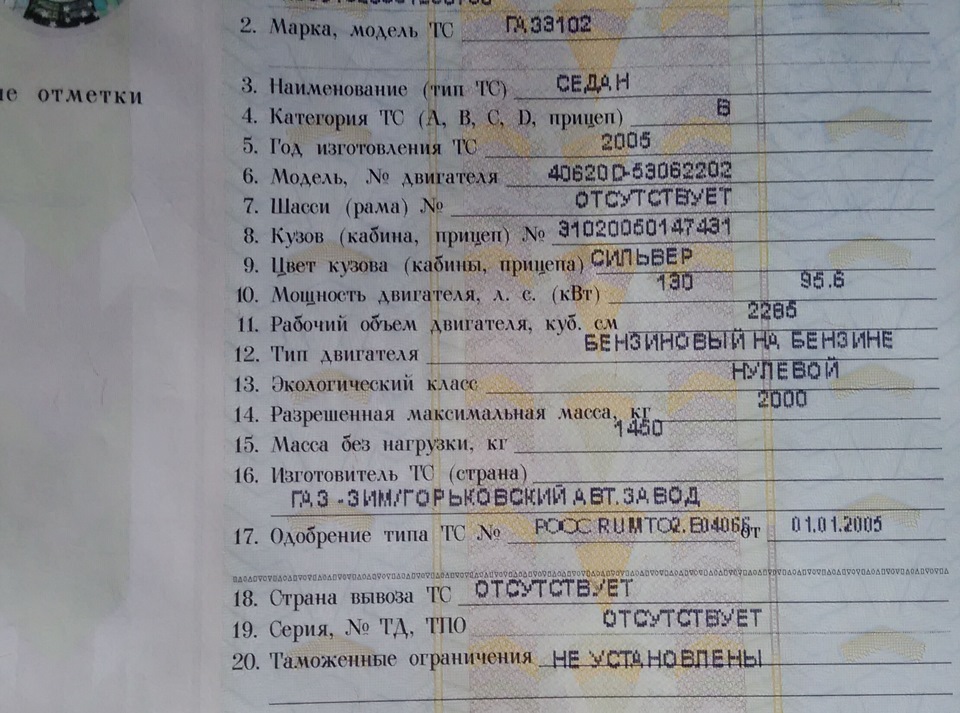 2. Марка, модель ТС ГАЗ3102
ые отметки
3. Наименование (тип ТС) СЕДАН
4. Категория ТС (А, В, С, D, прицеп) В
5. Год изготовления ТС 2005
6. Модель, № двигателя 40620D-53062202
7. Шасси (рама) № ОТСУТСТВУЕТ
8. Кузов (кабина, прицеп) № 31020050147431
9. Цвет кузова (кабины, прицепа) СИЛЬВЕР
10. Мощность двигателя, л. с. (кВт) 130 95.6
11. Рабочий объем двигателя, куб. см 2285
12. Тип двигателя БЕНЗИНОВЫЙ НА БЕНЗИНЕ
13. Экологический класс НУЛЕВОЙ
14. Разрешенная максимальная масса, кг 2000
15. Масса без нагрузки, кг 1450
16. Изготовитель ТС (страна)
ГАЗ -ЗИМ/ГОРЬКОВСКИЙ АВТ.ЗАВОД
17. Одобрение типа ТС № РОСС RU.МТ02.Е04066 от 01.01.2005
18. Страна вывоза ТС ОТСУТСТВУЕТ
19. Серия, № ТД, ТПО ОТСУТСТВУЕТ
20. Таможенные ограничения НЕ УСТАНОВЛЕНЫ